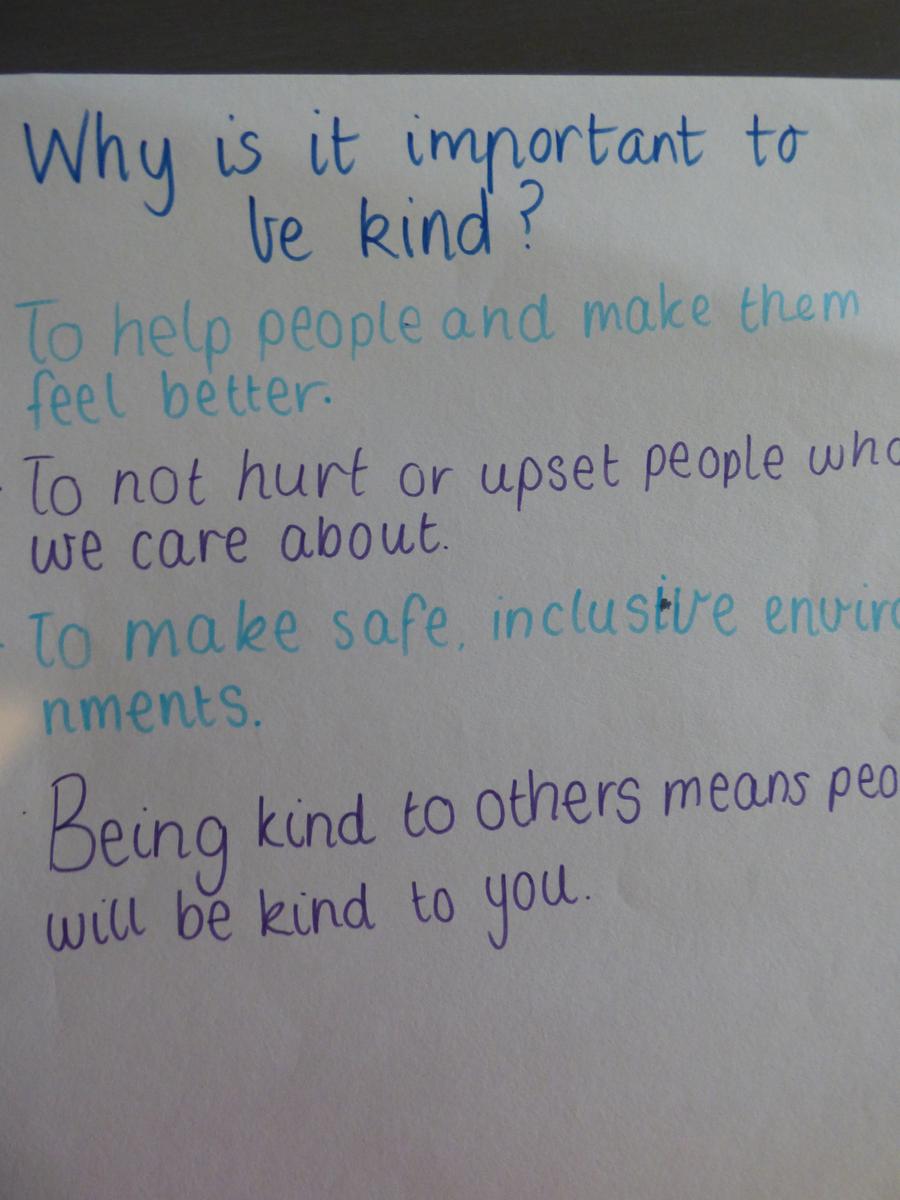 Why is it important to
be kind?
To help people and make them
feel better.
- To not hurt or upset people who
we care about.
- To make safe, inclusive enviro
nments.
Being kind to others means peo
will be kind to you.